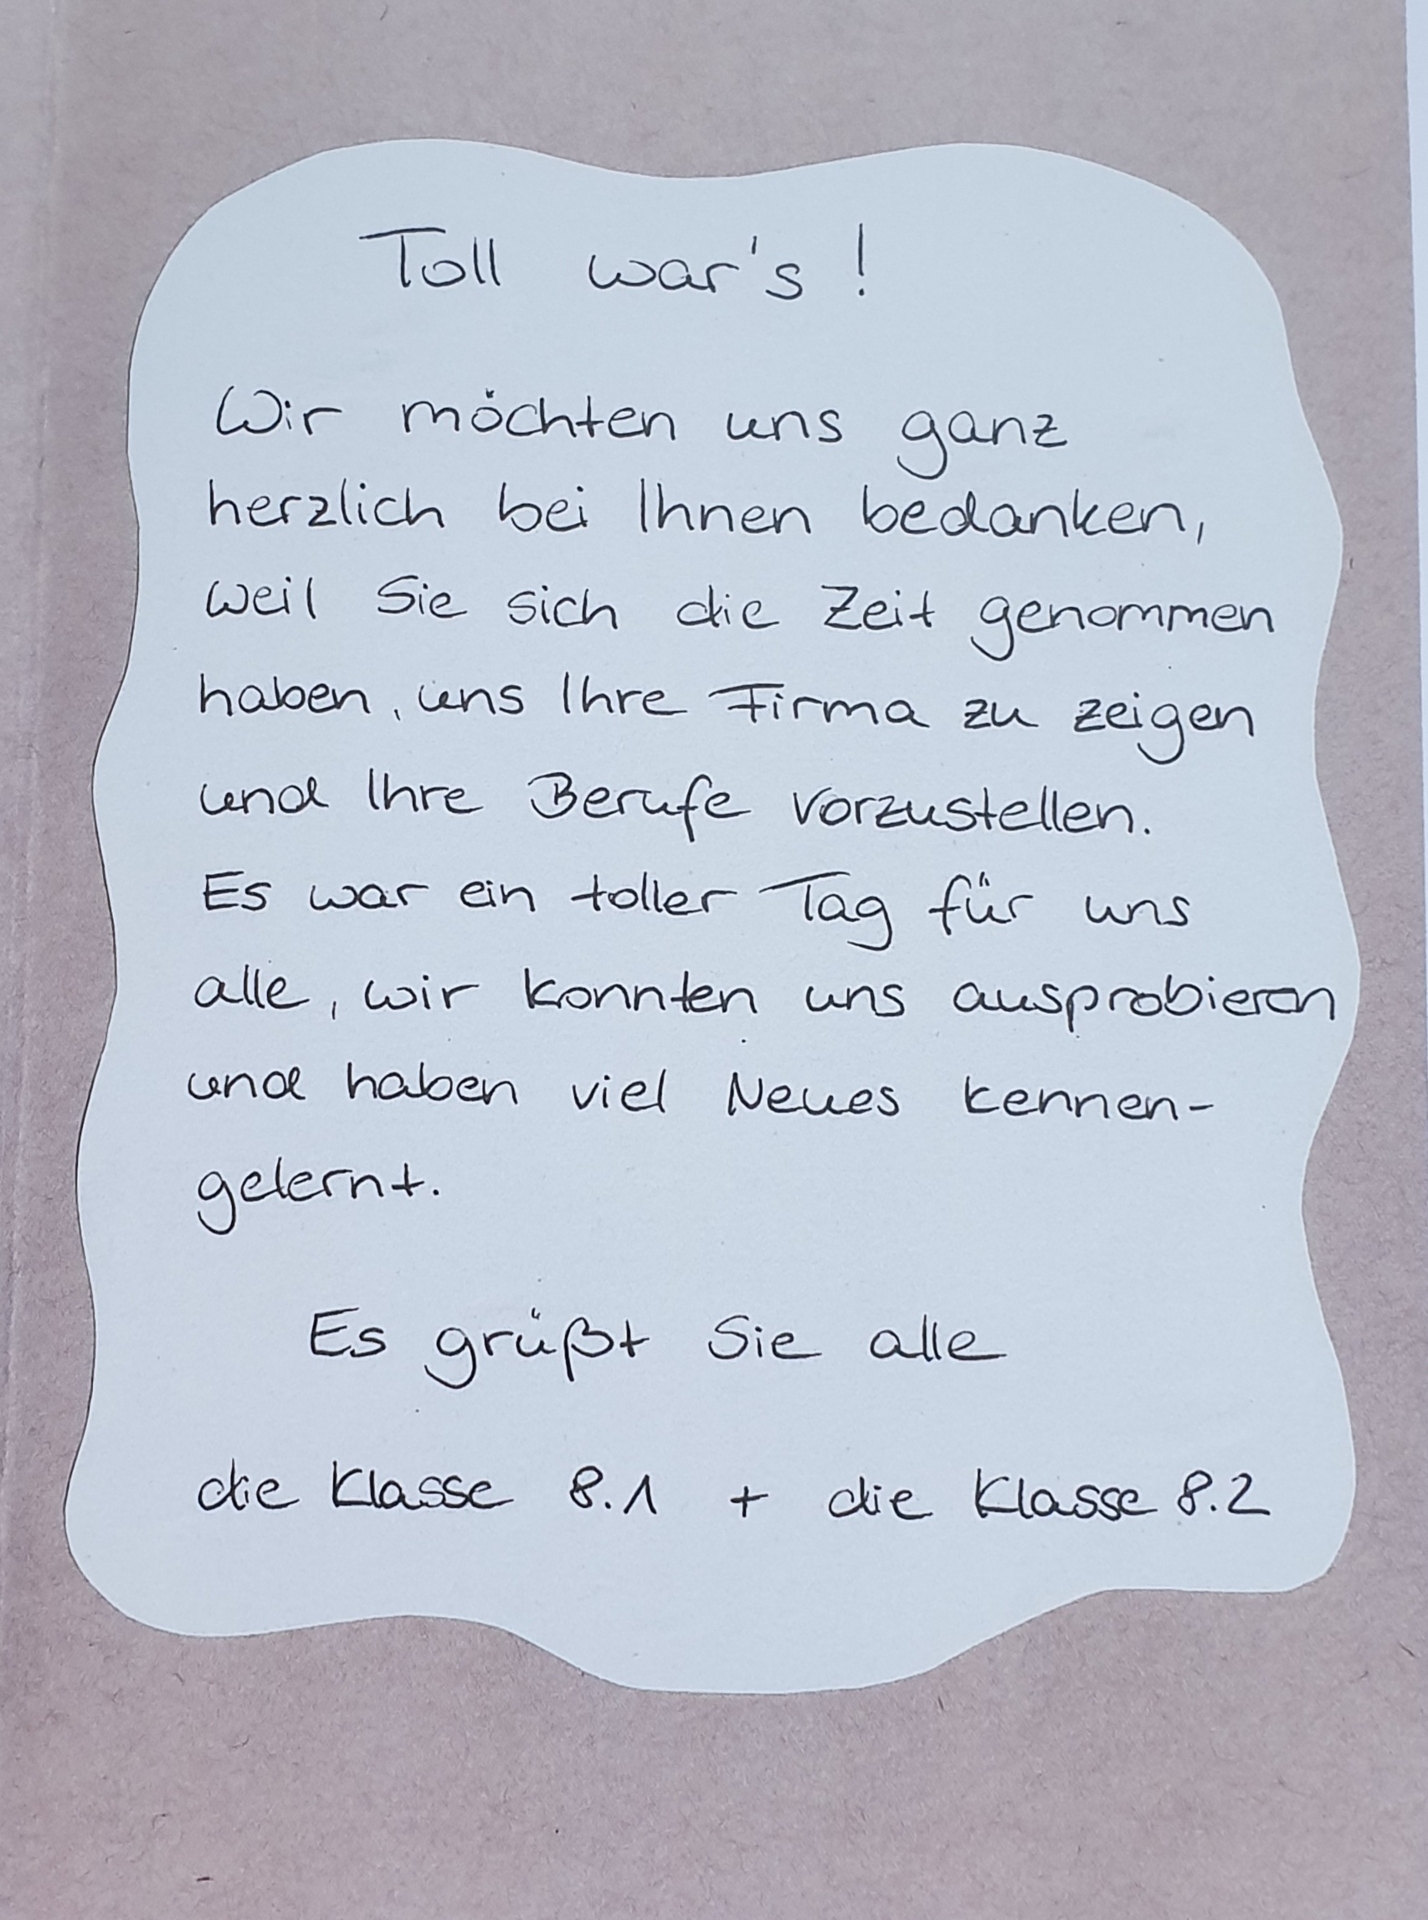 Toll war's!
Wir möchten uns ganz
herzlich bei Ihnen bedanken,
weil Sie sich die Zeit genommen
haben, uns Ihre Firma zu zeigen
und Ihre Berufe vorzustellen.
Es war ein toller Tag für uns
alle, wir konnten uns ausprobieren
und haben viel Neues kennen-
gelernt.
Es grüßt Sie alle
die Klasse 8.1 + die Klasse 8.2